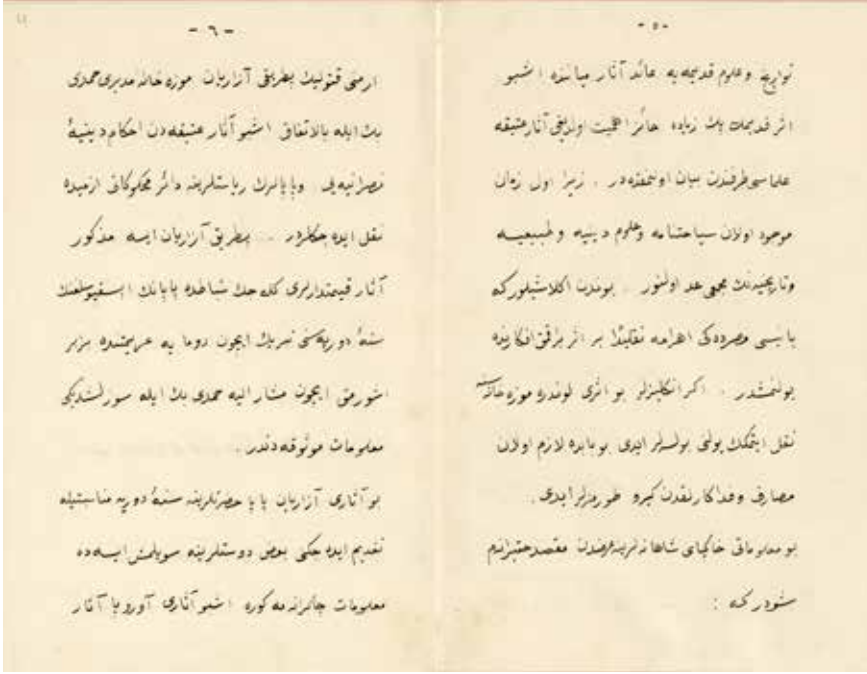 - ٥ -
تواريخ وعلوم قديمه‌يه عائد آثار ميانده اشبو
اثر قديمك پك زياده حائز اهميت اولديغى آثار عتيقه
علماسى طرفندن بيان اولنمقده‌در . زيرا اول زمان
موجود اولان سياحتنامه وعلوم دينيه وطبيعيه
وتاريخيه‌نك مجمعى عد اولنور . بوندن اكلاشيلوركه
بانيسى مصرده‌كى اهرامه تقليدًا بر اثر براقمق افكارنده
بولنمشدر . اكر انكليزلر بو اثرى لوندره موزه‌خانه‌سنه
نقل ايتمك يولنى بولسه‌لر ايدى بو بابده لازم اولان
مصارف وفداكارلقدن كيرو طورمزلر ايدى .
بو معلوماتى خاكپاى شاهانه‌لرينه عرضدن مقصد حقيرانه‌م
شودركه :
- ٦ -
ارمنى قتوليك بطريقى آزاريان موزه‌خانه مديرى حمدى
بك ايله بالاتفاق اشبو آثار عتيقه‌دن احكام دينيهٔ
نصرانيه‌يى وپاپالرك رياستلرينه دائر محكوكاتى ازميره
نقل ايده‌جكلردر .. بطريق آزاريان ايسه مذكور
آثار قيمتدارلرى كله‌جك شباطده پاپانك اپسقپوسلغنك
سنهٔ دوريه‌سنى تبريك ايچون روما يه عزيمتنده برابر
اشورمق ايچون مشار اليه حمدى بك ايله سوزلشديكى
معلومات موثوقه‌دندر .
بو آثارى آزاريان پاپا حضرتلرينه سنهٔ دوريه مناسبتيله
تقديم ايده‌جكنى بعض دوستلرينه سويلمش ايسه‌ده
معلومات چاكرانه‌مه كوره اشبو آثارى آوروپا آثار